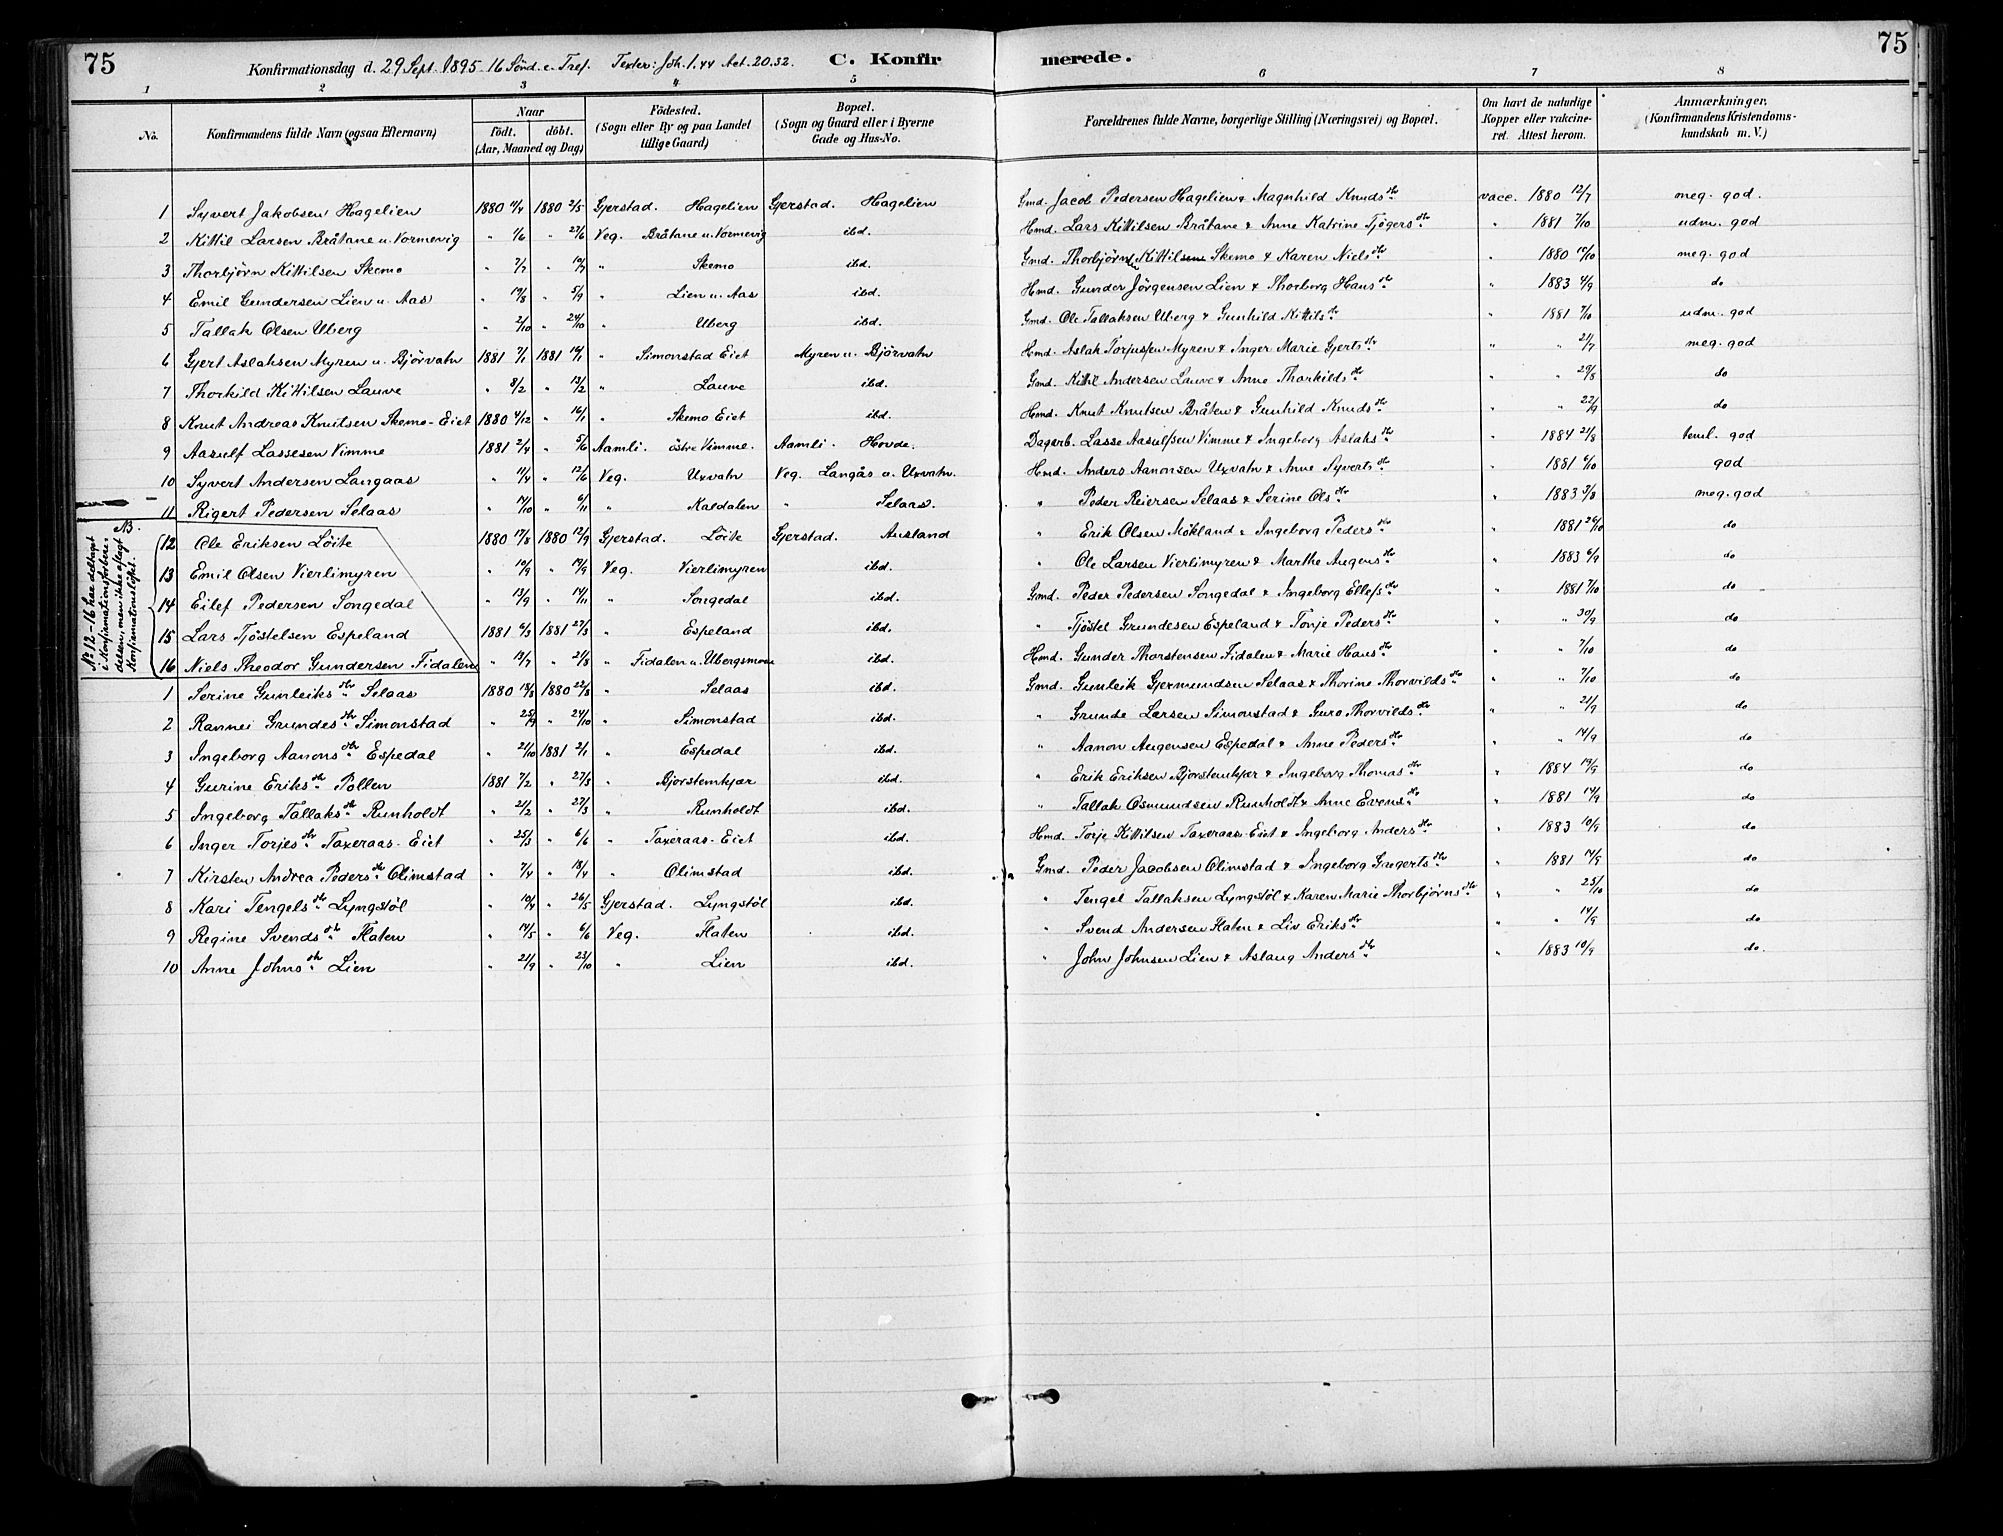 75 Konfirmationsdag d. 29 Sept. 1895 - 16 Sönd. e. Tref. Texter: Joh. 1.44 Act. 20.32. C. Konfirmerede. 75
1 2 3 4 5 6 7 8
No. Konfirmandens fulde Navn (ogsaa Efternavn) Naar födt. döbt. (Aar, Maaned og Dag) Födested. (Sogn eller By og paa Landet tillige Gaard) Bopæl. (Sogn og Gaard eller i Byerne Gade og Hus-No. Forældrenes fulde Navne, borgerlige Stilling (Næringsvei) og Bopæl. Om havt de naturlige Kopper eller vakcineret. Attest herom. Anmærkninger. (Konfirmandens Kristendomskundskab m. V.)
1 Syvert Jakobsen Hagelien 1880 11/4 1880 2/5 Gjerstad. Hagelien Gjerstad. Hagelien Gmd. Jacob Pedersen Hagelien & Magnhild Knudsdtr vacc. 1880 12/7 meg. god.
2 Kittil Larsen Bråtane u. Vormevig " 1/6 " 27/6 Veg. Bråtane u. Vormevig ibd. Hmd. Lars Kittilsen Bråtane & Anne Katrine Tjögersdtr " 1881 7/10 udm. god
3 Thorbjörn Kittilsen Skemo " 7/7 " 10/7 " Skemo ibd. Gmd. Thorbjörn Kittilsen Skemo & Karen Nielsdtr " 1880 10/10 meg. god
4 Emil Gundersen Lien u. Aas " 19/8 " 5/9 " Lien u. Aas ibd. Hmd. Gunder Jörgensen Lien & Thorborg Hansdtr " 1883 4/9 do
5 Tallak Olsen Uberg " 2/10 " 24/10 " Uberg ibd. Gmd. Ole Tallaksen Uberg & Gunhild Kittilsdtr " 1881 7/10 udm. god
6 Gjert Aslaksen Myren u. Björvatn 1881 7/1 1881 16/1 " Simonstad Eiet Myren u. Björvatn Hmd. Aslak Torjussen Myren & Inger Marie Gjertsdtr " " 21/7 meg. god
7 Thorkild Kittilsen Lauve " 8/2 " 13/2 " Lauve ibd. Gmd. Kittil Andersen Lauve & Anne Thorkildsdtr " " 29/8 do
8 Knut Andreas Knutsen Skemo-Eiet 1880 4/12 " 16/1 " Skemo Eiet ibd. Hmd. Knut Knutsen Bråten & Gunhild Knudsdtr " " 22/9 do
9 Aasulf Lassesen Vimme 1881 2/4 " 5/6 Aamli. östre Vimme. Aamli. Hovde. Dagarb. Lasse Aasulfsen Vimme & Ingeborg Aslaksdtr " 1884 21/8 teml. god
10 Syvert Andersen Langaas " 11/4 " 12/6 Veg. Uxvatn Veg. Langås u. Uxvatn. Hmd. Anders Aanonsen Uxvatn & Anne Syvertsdtr " 1881 6/10 god
11 Rigert Pedersen Selaas " 14/10 " 6/11 " Kaldalen " Selaas. " Peder Reiersen Selaas & Serine Olsdtr " 1883 3/8 meg. god
NB.
No 12-16 har deltaget i Konfirmationsforberedelsen, men ikke aflagt Konfirmationslöftet.
12 Ole Eriksen Löite 1880 17/8 1880 12/9 Gjerstad. Löite Gjerstad. Ausland " Erik Olsen Mökland & Ingeborg Pedersdtr " 1881 26/10 do
13 Emil Olsen Vierlimyren " 10/9 " 19/9 Veg. Vierlimyren ibd. " Ole Larsen Vierlimyren & Marthe Augensdtr " 1883 6/9 do
14 Eilef Pedersen Songedal " 13/9 " 14/11 " Songedal ibd. Gmd. Peder Pedersen Songedal & Ingeborg Ellefsdtr 1881 7/10 do
15 Lars Tjöstelsen Espeland 1881 6/3 1881 27/3 " Espeland ibd. " Tjöstel Grundesen Espeland & Tonje Pedersdtr " " 30/9 do
16 Niels Theodor Gundersen Fidalen " 13/7 " 21/8 " Fidalen u. Ubergsmoen ibd. Hmd. Gunder Thorstensen Fidalen & Marie Hansdtr " " 7/10 do
1 Serine Gunleiksdtr Selaas 1880 18/8 1880 22/8 " Selaas ibd. Gmd. Gunleik Gjermundsen Selaas & Thorine Thorvildsdtr " " 7/10 do
2 Rannei Grundesdtr Simonstad " 25/9 " 24/10 " Simonstad ibd. " Grunde Larsen Simonstad & Guro Thorvildsdtr " " 21/9 do
3 Ingeborg Aanonsdtr Espedal " 21/10 1881 2/1 " Espedal ibd. " Aanon Augensen Espedal & Anne Pedersdtr " " 14/9 do
4 Gurine Eriksdtr Pollen 1881 7/2 " 27/3 " Bjorstemkjær ibd. " Erik Eriksen Bjorstemkjær & Ingeborg Thomasdtr " 1884 19/9 do
5 Ingeborg Tallaksdtr Runholdt " 21/2 " 27/3 " Runholdt ibd. " Tallak Osmundsen Runholdt & Anne Evensdtr " 1881 14/9 do
6 Inger Torjesdtr Taxeraas-Eiet " 25/3 " 6/6 " Taxeraas-Eiet ibd. Hmd. Torje Kittilsen Taxeraas-Eiet & Ingeborg Andersdtr " 1883 10/9 do
7 Kirsten Andrea Pedersdtr Olimstad " 7/4 " 18/4 " Olimstad ibd. Gmd. Peder Jacobsen Olimstad & Ingeborg Ingertsdtr " 1881 14/9 do
8 Kari Tengelsdtr Lyngstöl " 10/4 " 26/5 Gjerstad. Lyngstöl ibd. " Tengel Tallaksen Lyngstöl & Karen Marie Thorbjörnsdtr " " 25/10 do
9 Regine Svendsdtr Flaten " 14/5 " 6/6 Veg. Flaten ibd. " Svend Andersen Flaten & Liv Eriksdtr " " 14/9 do
10 Anne Johnsdtr Lien " 21/9 " 23/10 " Lien ibd. " John Johnsen Lien & Aslaug Andersdtr " 1883 10/9 do.